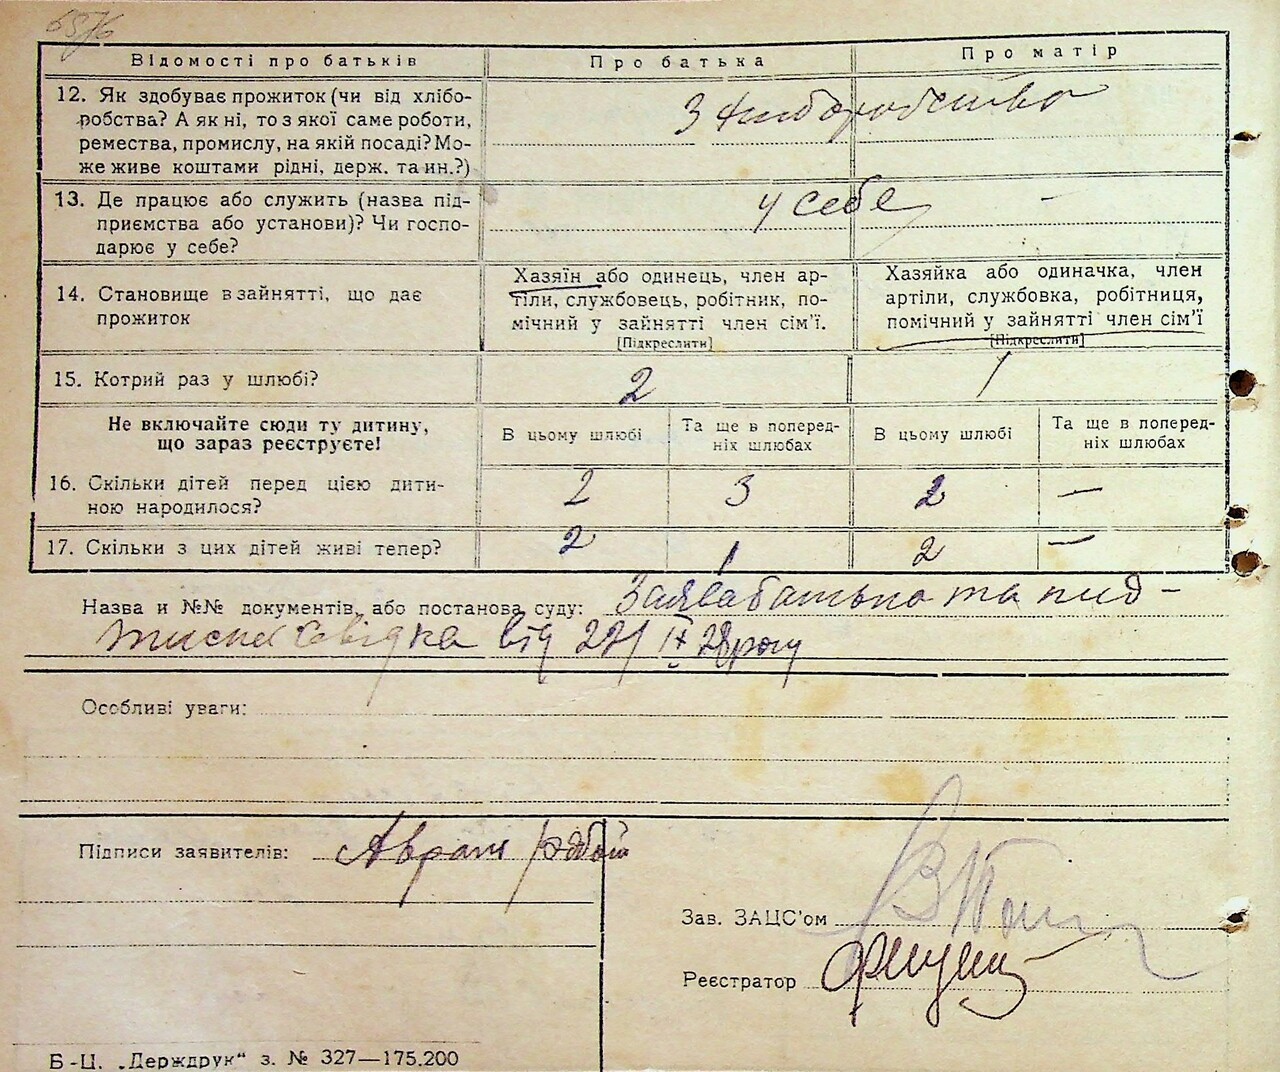 6576
Відомості про батьків
Про батька
Про матір
12. Як здобуває прожиток (чи від хлібо-
робства? А як ні, то з якої саме роботи,
ремества, промислу, на якій посаді? Мо-
же живе коштами рідні, держ. та ин.?)
З хліборобства
13. Де працює або служить (назва під-
приємства або установи)? Чи госпо-
дарює у себе?
у себе -
14. Становище в зайнятті, що дає
прожиток
Хазяїн або одинець, член ар-
тіли, службовець, робітник, по-
мічний у зайнятті член сім'ї.
[Підкреслити]
Хазяйка або одиначка, член
артіли, службовка, робітниця,
помічний у зайнятті член сім'ї
[Підкреслити]
15. Котрий раз у шлюбі?
2
1
Не включайте сюди ту дитину,
що зараз реєструєте!
В цьому шлюбі
Та ще в поперед-
ніх шлюбах
В цьому шлюбі
Та ще в поперед-
ніх шлюбах
16. Скільки дітей перед цією дити-
ною народилося?
2 3 2 —
17. Скільки з цих дітей живі тепер?
2 1 2 —
Назва и №№ документів, або постанова суду: Заява батька та під-
писка свідка від 27/IX 28 року
Особливі уваги:
Підписи заявителів: Аврам
Зав. ЗАЦС'ом
Реєстратор
Б-Ц. „Держдрук" з. № 327—175.200